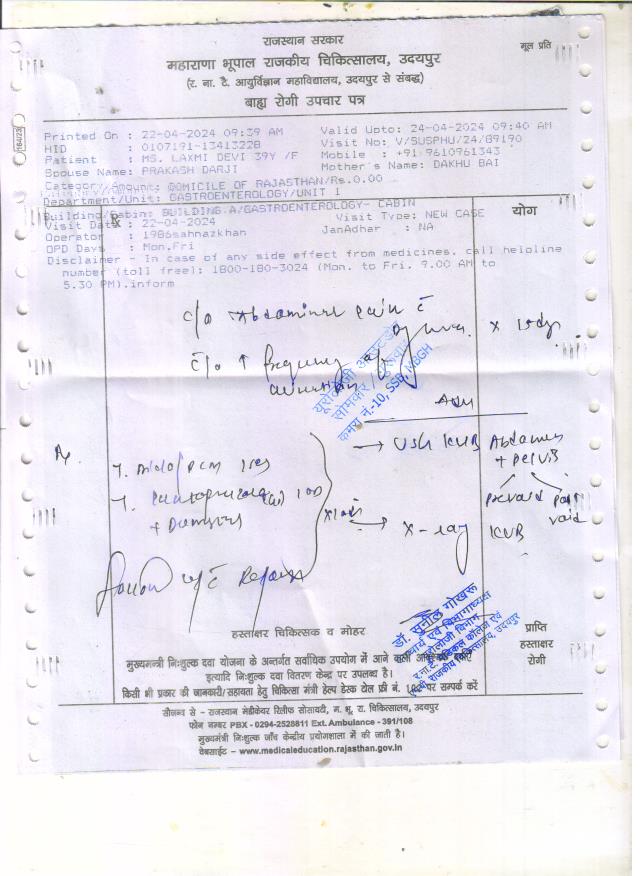 राजस्थान सरकार
मूल प्रति
महाराणा भूपाल राजकीय चिकित्सालय, उदयपुर
(र. ना. टै. आयुर्विज्ञान महाविद्यालय, उदयपुर से संबद्ध)
बाह्य रोगी उपचार पत्र
164/23
Printed On : 22-04-2024 09:39 AM Valid Upto: 24-04-2024 09:40 AM
HID : 0107191-13413228 Visit No: V/SUSPHU/24/89190
Patient : MS. LAXMI DEVI 39Y /F Mobile : +91-9610961343
Spouse Name: PRAKASH DARJI Mother's Name: DAKHU BAI
Category/Amount: DOMICILE OF RAJASTHAN/Rs.0.00
Department/Unit: GASTROENTEROLOGY/UNIT 1
Building/Cabin: BUILDING A/GASTROENTEROLOGY- CABIN
योग
Visit Date : 22-04-2024 Visit Type: NEW CASE
Operator : 1986sahnazkhan JanAdhar : NA
OPD Days : Mon,Fri
Disclaimer - In case of any side effect from medicines, call helpline
number (toll free): 1800-180-3024 (Mon. to Fri. 9.00 AM to
5.30 PM).inform
c/o Abdominal pain
c/o ↑ frequency of
यूरोलोजी आउटडोर
सोमवार / गुरूवार
कमरा नं.-10, SSB, MBGH
Adv
→ USG KUB Abdomen
+ pelvis
prevoid post
void
→ X-ray KUB
Rx
+ Domperi
हस्ताक्षर चिकित्सक व मोहर
डॉ. सुनील गोखरू
आचार्य एवं विभागाध्यक्ष
प्राप्ति
हस्ताक्षर
रोगी
मुख्यमन्त्री निःशुल्क दवा योजना के अन्तर्गत सर्वाधिक उपयोग में आने वाली
इत्यादि निःशुल्क दवा वितरण केन्द्र पर उपलब्ध है।
किसी भी प्रकार की जानकारी/सहायता हेतु चिकित्सा मंत्री हेल्प डेस्क टोल फ्री नं. पर सम्पर्क करें
सौजन्य से - राजस्थान मेडीकेयर रिलीफ सोसायटी, म. भू. रा. चिकित्सालय, उदयपुर
फोन नम्बर PBX - 0294-2528811 Ext. Ambulance - 391/108
मुख्यमंत्री निःशुल्क जाँच केन्द्रीय प्रयोगशाला में की जाती है।
वेबसाईट – www.medicaleducation.rajasthan.gov.in